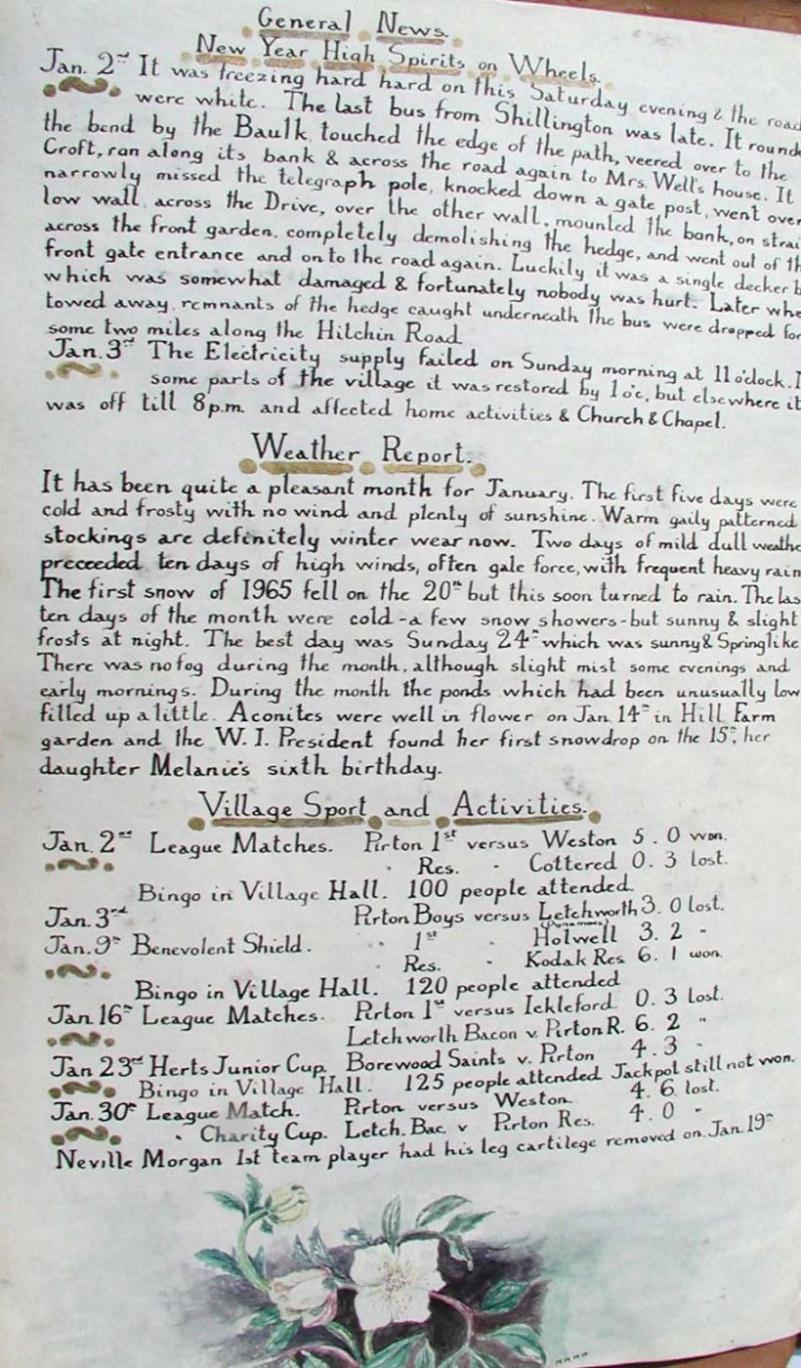 General News.
New Year High Spirits on Wheels.
Jan. 2nd It was freezing hard hard on this Saturday evening & the road
were white. The last bus from Shillington was late. It round
the bend by the Baulk, touched the edge of the path, veered over to the
Croft, ran along its bank & across the road again to Mrs. Well's house. It
narrowly missed the telegraph pole, knocked down a gate post, went over
low wall, across the Drive, over the other wall, mounted the bank, on strai
across the front garden, completely demolishing the hedge, and went out of th
front gate entrance and on to the road again. Luckily it was a single decker b
which was somewhat damaged & fortunately nobody was hurt. Later whe
towed away, remnants of the hedge caught underneath the bus were dropped for
some two miles along the Hitchin Road
Jan. 3rd The Electricity supply failed on Sunday morning at 11 o'clock. I
some parts of the village it was restored by 1 o'c, but elsewhere it
was off till 8 p.m. and affected home activities & Church & Chapel.
Weather Report.
It has been quite a pleasant month for January. The first five days were
cold and frosty with no wind and plenty of sunshine. Warm gaily patterned
stockings are definitely winter wear now. Two days of mild dull weathe
preceeded ten days of high winds, often gale force, with frequent heavy rain
The first snow of 1965 fell on the 20th but this soon turned to rain. The las
ten days of the month were cold - a few snow showers - but sunny & slight
frosts at night. The best day was Sunday 24th which was sunny & Springlike
There was no fog during the month, although slight mist some evenings and
early mornings. During the month the ponds which had been unusually low
filled up a little. Aconites were well in flower on Jan. 14th in Hill Farm
garden and the W. I. President found her first snowdrop on the 15th, her
daughter Melanie's sixth birthday.
Village Sport and Activities.
Jan. 2nd League Matches. Pirton 1st versus Weston 5 . 0 won.
" Res. " Cottered 0 . 3 lost.
Bingo in Village Hall. 100 people attended.
Jan. 3rd Pirton Boys versus Letchworth 3 . 0 lost.
Jan. 9th Benevolent Shield. " 1st " Holwell 3 . 2 "
" Res. " Kodak Res 6 . 1 won.
Bingo in Village Hall. 120 people attended
Jan 16th League Matches. Pirton 1st versus Ickleford 0 . 3 lost.
Letchworth Bacon v. Pirton R. 6 . 2 "
Jan 23rd Herts Junior Cup Borewood Saints v. Pirton 4 . 3 "
Bingo in Village Hall. 125 people attended Jackpot still not won.
Jan. 30th League Match. Pirton versus Weston. 4 . 6 lost.
" Charity Cup. Letch. Bac. v Pirton Res. 4 . 0 "
Neville Morgan 1st team player had his leg cartilege removed on Jan. 19th